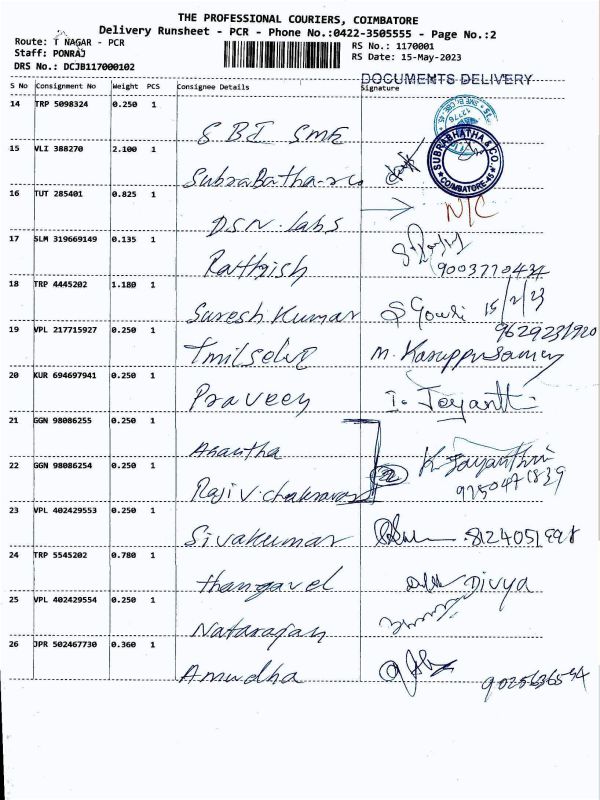 THE PROFESSIONAL COURIERS, COIMBATORE
Delivery Runsheet - PCR - Phone No.:0422-3505555 - Page No.:2
Route: T NAGAR - PCR
Staff: PONRAJ
DRS No.: DCJB117000102
RS No.: 1170001
RS Date: 15-May-2023
DOCUMENTS DELIVERY
S No Consignment No Weight PCS Consignee Details Signature
14 TRP 5098324 0.250 1
SBI SME
15 VLI 388270 2.100 1
SUBRABHATHA & CO.
COIMBATORE-45
16 TUT 285401 0.825 1
DSN labs N/C
17 SLM 319669149 0.135 1
Rathish 9003770434
18 TRP 4445202 1.180 1
Suresh Kumar S Gowri 15/2/23
19 VPL 217715927 0.250 1
9629231920
M. Karuppusamy
20 KUR 694697941 0.250 1
Praveen
21 GGN 98086255 0.250 1
Anantha K. Jayanthri
22 GGN 98086254 0.250 1
2
23 VPL 402429553 0.250 1
Sivakumar 8124051998
24 TRP 5545202 0.780 1
Thangavel Divya
25 VPL 402429554 0.250 1
Natarajan
26 JPR 502467730 0.360 1
Amudha